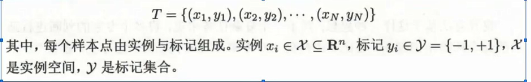 T = {(x₁, y₁), (x₂, y₂), ··· , (x_N, y_N)}
其中，每个样本点由实例与标记组成。实例 xᵢ ∈ 𝒳 ⊆ Rⁿ, 标记 yᵢ ∈ 𝒴 = {−1, +1}, 𝒳
是实例空间, 𝒴 是标记集合。